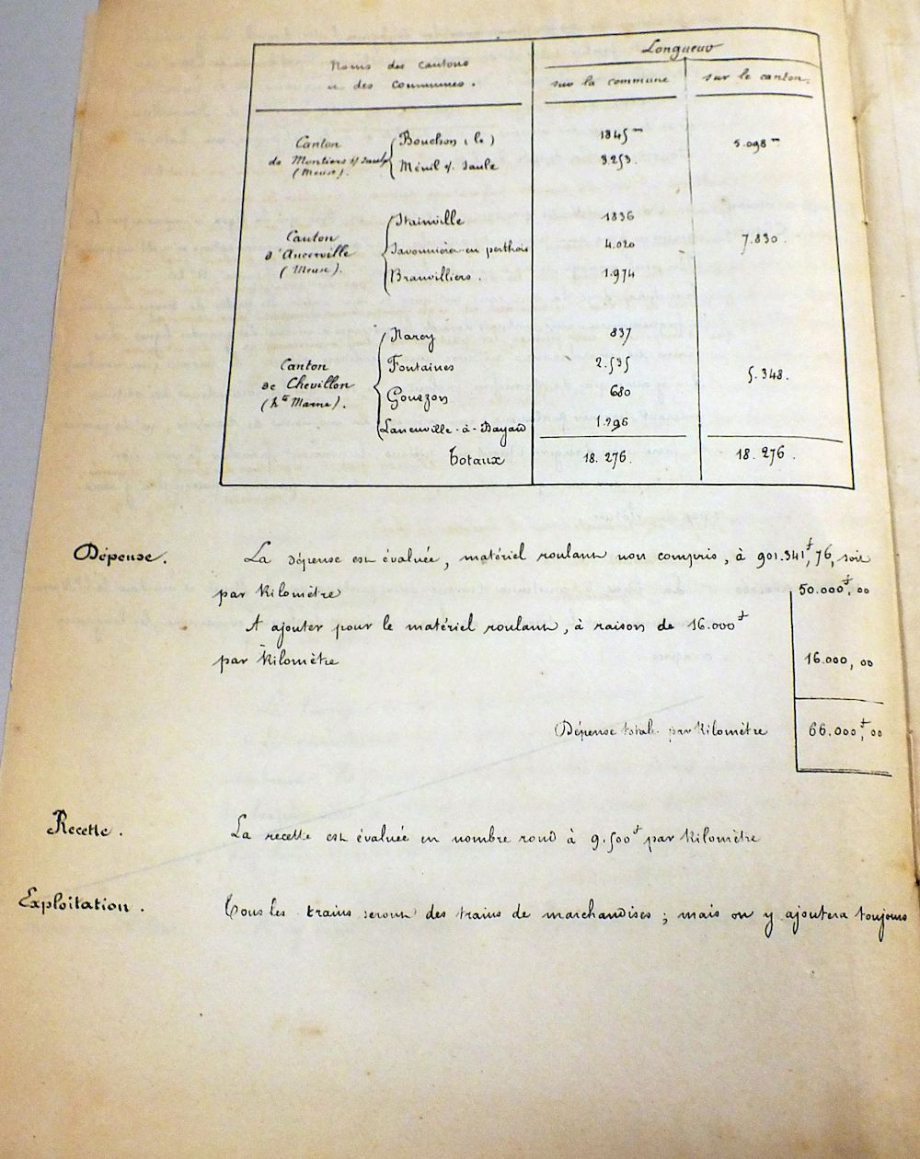 Noms des cantons
et des Communes.
Longueur
sur la commune
sur le canton.
Canton
de Montiers s/ Saulx
(Meuse).
Bouchon (le)
1845 m
5.098 m
Ménil s/ Saulx
3.253
Canton
d'Ancerville
(Meuse).
Stainville
1836
Savonnières en perthois
4.020
7.830.
Brauvilliers.
1.974
Canton
de Chevillon
(hte Marne).
Narcy
837
Fontaines
2.535
5.348.
Gourzon
680
Laneuville-à-Bayard
1.296
Totaux
18.276.
18.276.
Dépense.
La dépense est évaluée, matériel roulant non compris, à 901.341f,76, soit
par Kilomètre
50.000f,00
A ajouter pour le matériel roulant, à raison de 16.000f
par Kilomètre
16.000,00
Dépense totale par Kilomètre
66.000f,00
Recette.
La recette est évaluée en nombre rond à 9.500f par Kilomètre
Exploitation.
Tous les trains seront des trains de marchandises; mais on y ajoutera toujours